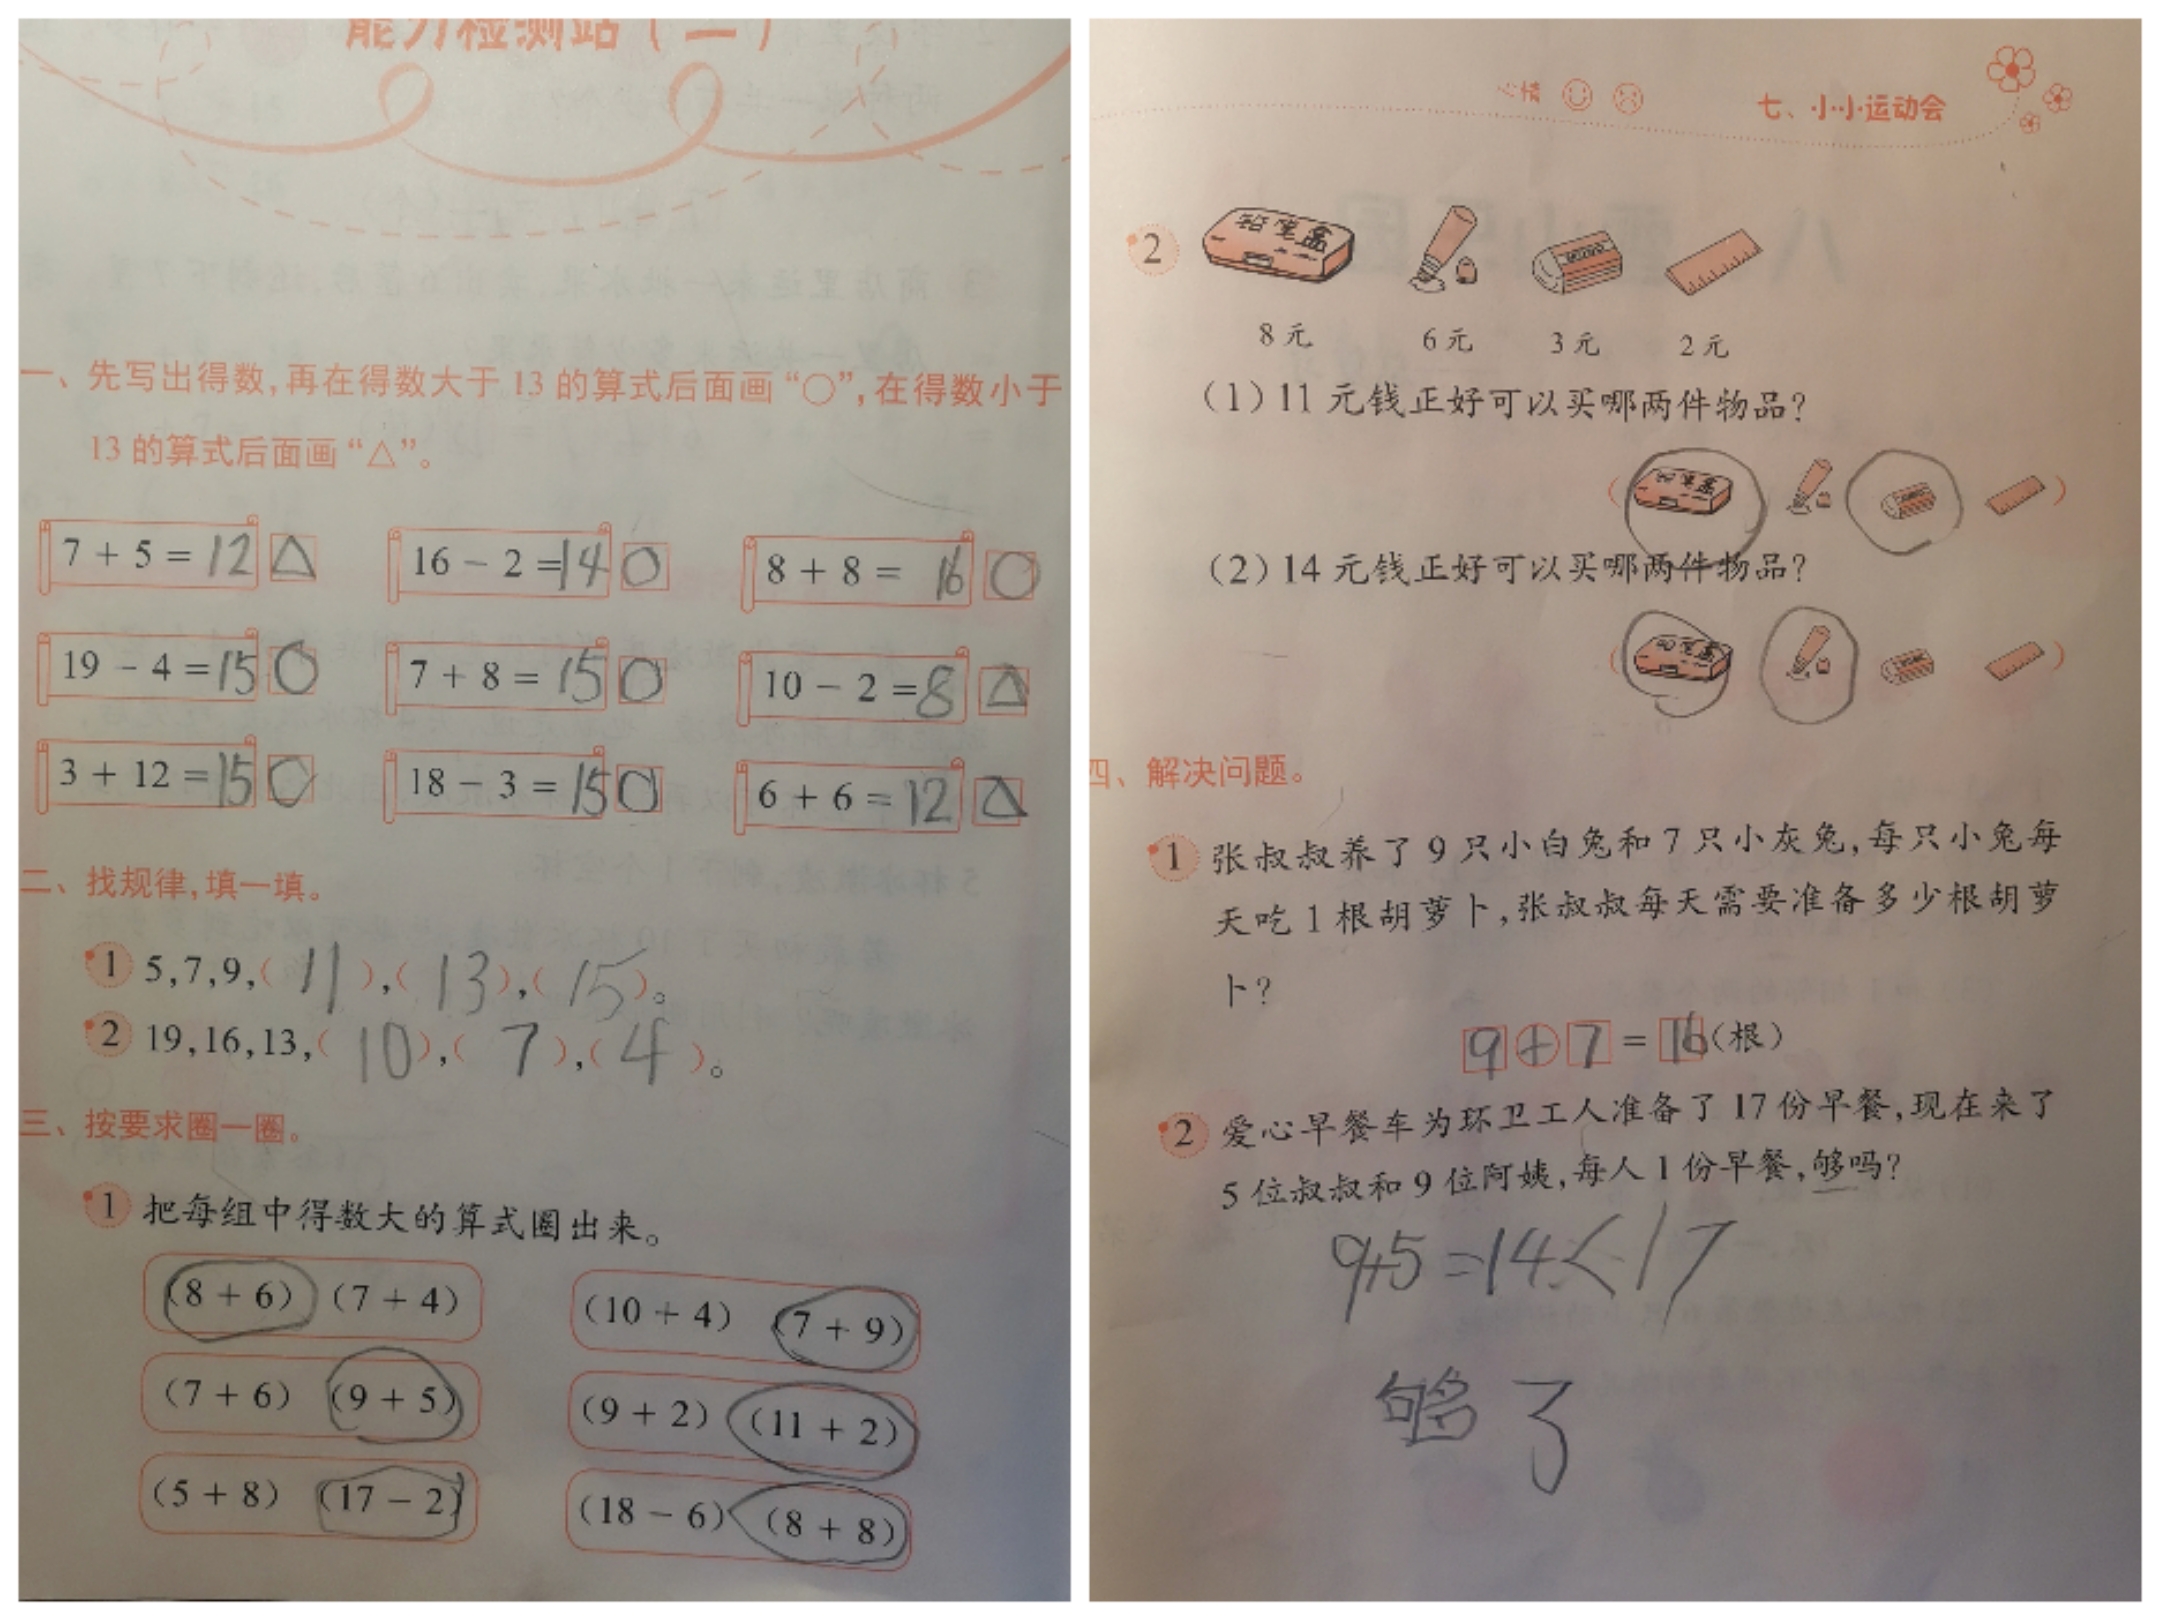 能力检测站（二）
一、先写出得数,再在得数大于 13 的算式后面画“○”,在得数小于
13 的算式后面画“△”。
7 + 5 = 12 △ 16 - 2 = 14 ○ 8 + 8 = 16 ○
19 - 4 = 15 ○ 7 + 8 = 15 ○ 10 - 2 = 8 △
3 + 12 = 15 ○ 18 - 3 = 15 ○ 6 + 6 = 12 △
二、找规律,填一填。
1 5,7,9,( 11 ),( 13 ),( 15 )。
2 19,16,13,( 10 ),( 7 ),( 4 )。
三、按要求圈一圈。
1 把每组中得数大的算式圈出来。
(8 + 6) (7 + 4) (10 + 4) (7 + 9)
(7 + 6) (9 + 5) (9 + 2) (11 + 2)
(5 + 8) (17 - 2) (18 - 6) (8 + 8)
心情 七、小小运动会
2 铅笔盒
8 元 6 元 3 元 2 元
(1) 11 元钱正好可以买哪两件物品?
( 铅笔盒 )
(2) 14 元钱正好可以买哪两件物品?
( 铅笔盒 )
四、解决问题。
1 张叔叔养了 9 只小白兔和 7 只小灰兔,每只小兔每
天吃 1 根胡萝卜,张叔叔每天需要准备多少根胡萝
卜?
9 + 7 = 16 (根)
2 爱心早餐车为环卫工人准备了 17 份早餐,现在来了
5 位叔叔和 9 位阿姨,每人 1 份早餐,够吗?
9+5=14<17
够了